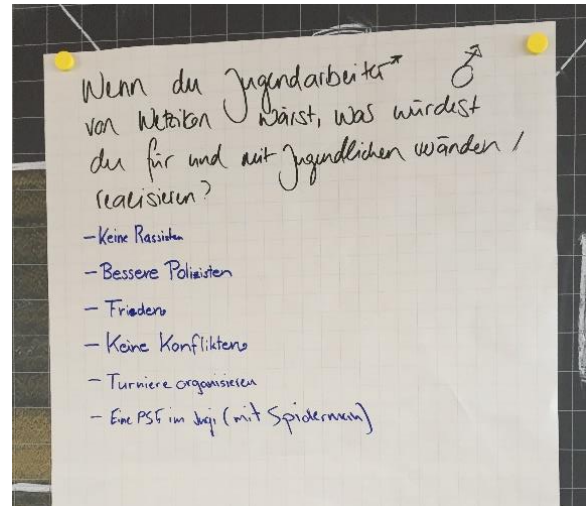 Wenn du Jugendarbeiter*
von Wetzikon wärst, was würdest
du für und mit Jugendlichen ändern /
realisieren?
- Keine Rassisten
- Bessere Polizisten
- Frieden
- Keine Konflikten
- Turniere organisieren
- Eine PS5 im Jugi (mit Spiderman)